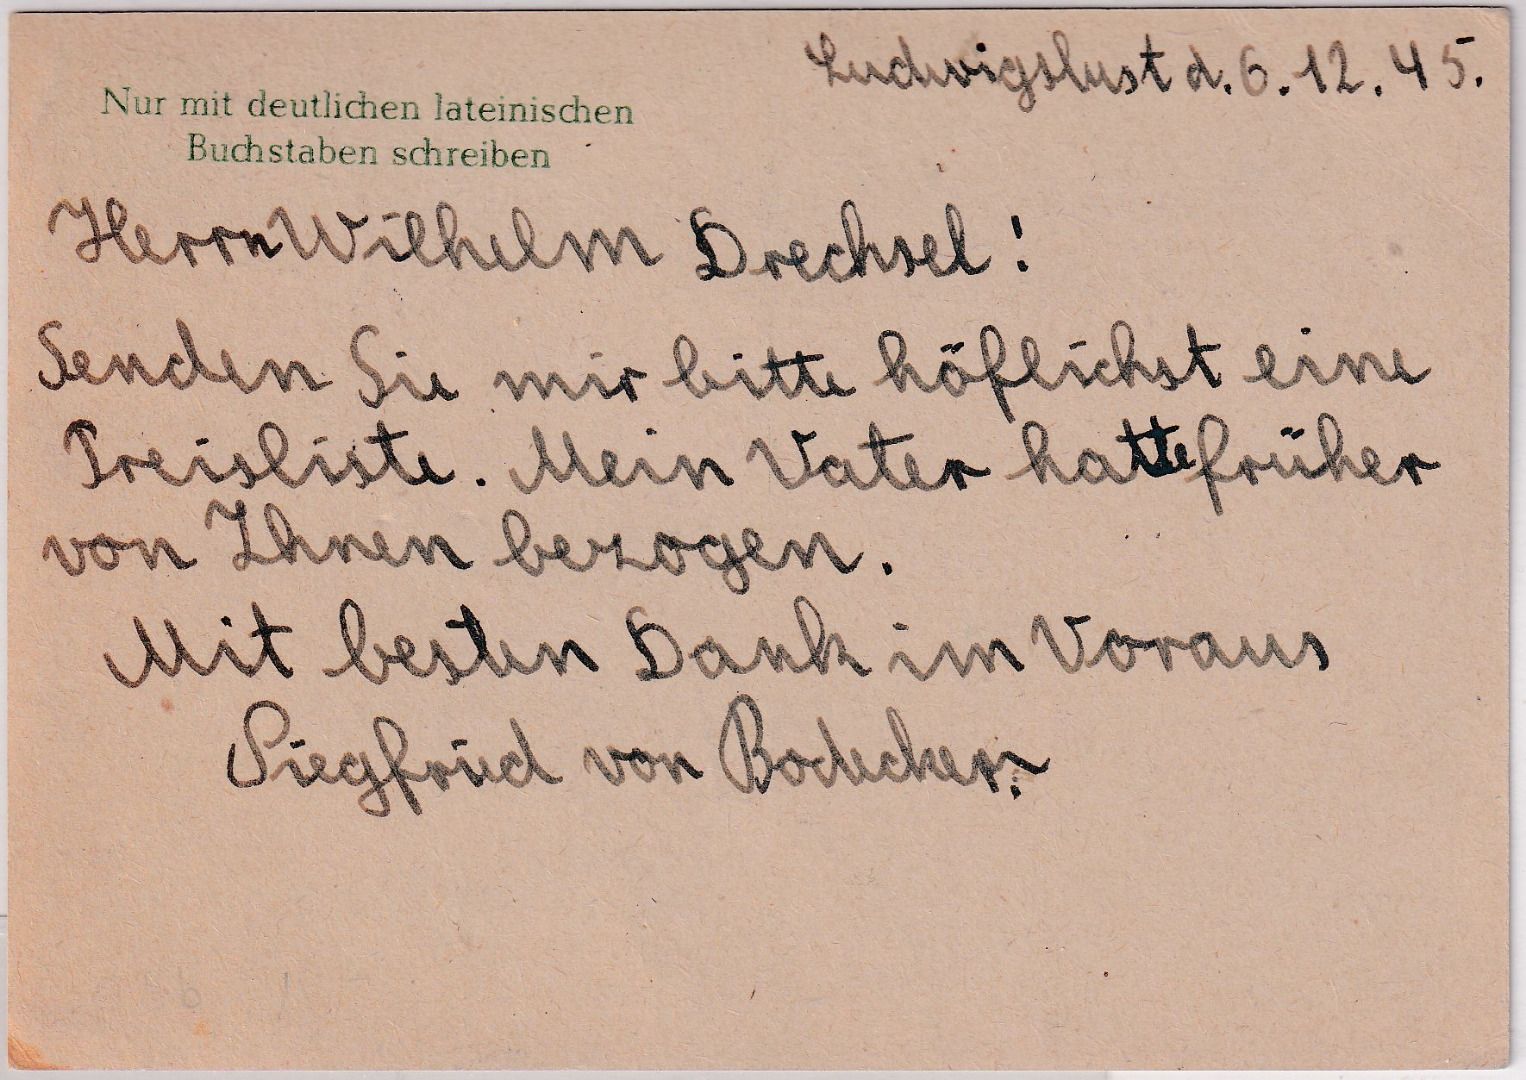 Ludwigslust d. 6. 12. 45.
Nur mit deutlichen lateinischen
Buchstaben schreiben
Herrn Wilhelm Drechsel!
Senden Sie mir bitte höflichst eine
Preisliste. Mein Vater hatte früher
von Ihnen bezogen.
Mit besten Dank im Voraus
Siegfried von Bodecker.